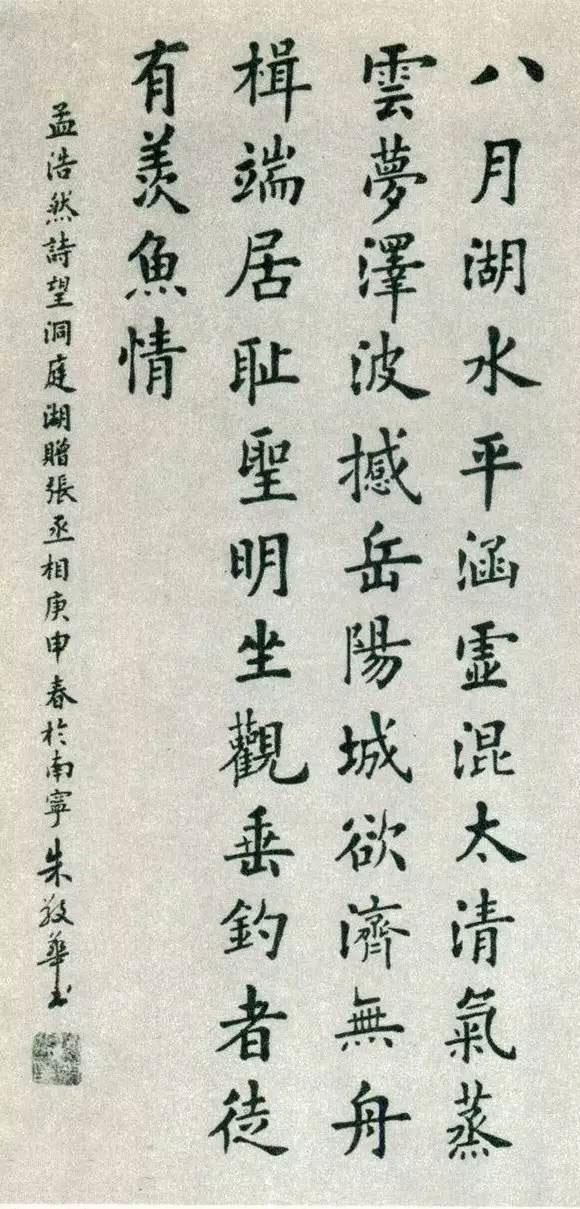 八月湖水平涵虛混太清氣蒸
雲夢澤波撼岳陽城欲濟無舟
楫端居恥聖明坐觀垂釣者徒
有羨魚情
孟浩然詩望洞庭湖贈張丞相庚申春於南寧朱敬華書